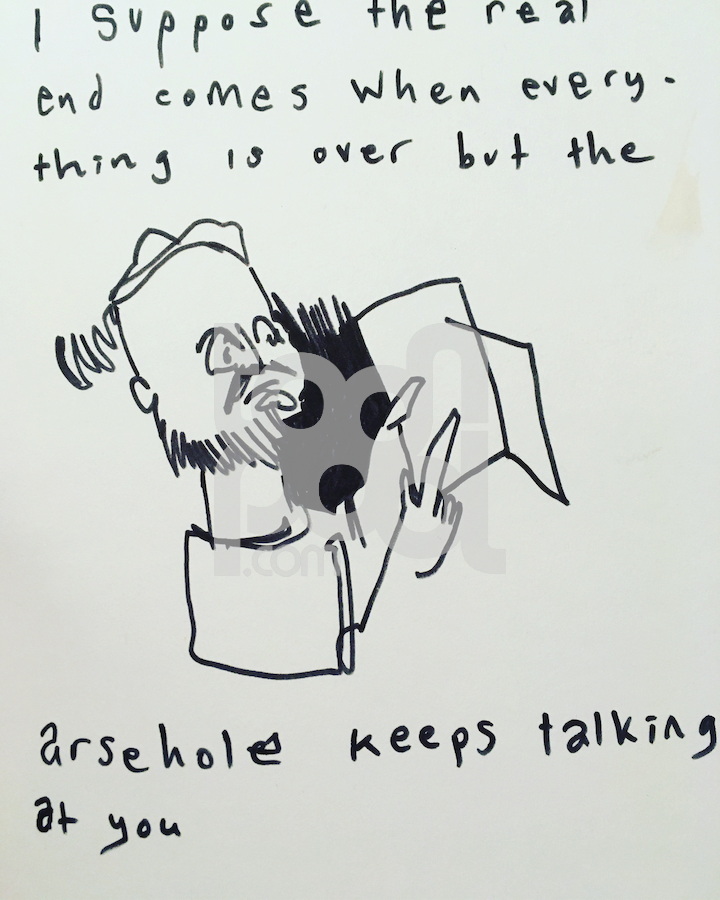 I suppose the real
end comes when every-
thing is over but the
pdl
.com
arsehole keeps talking
at you